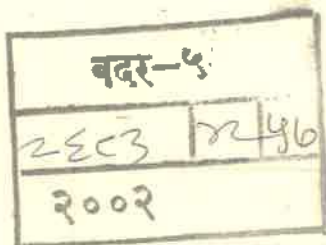 बदर-५
२६८३ ५७
२००२